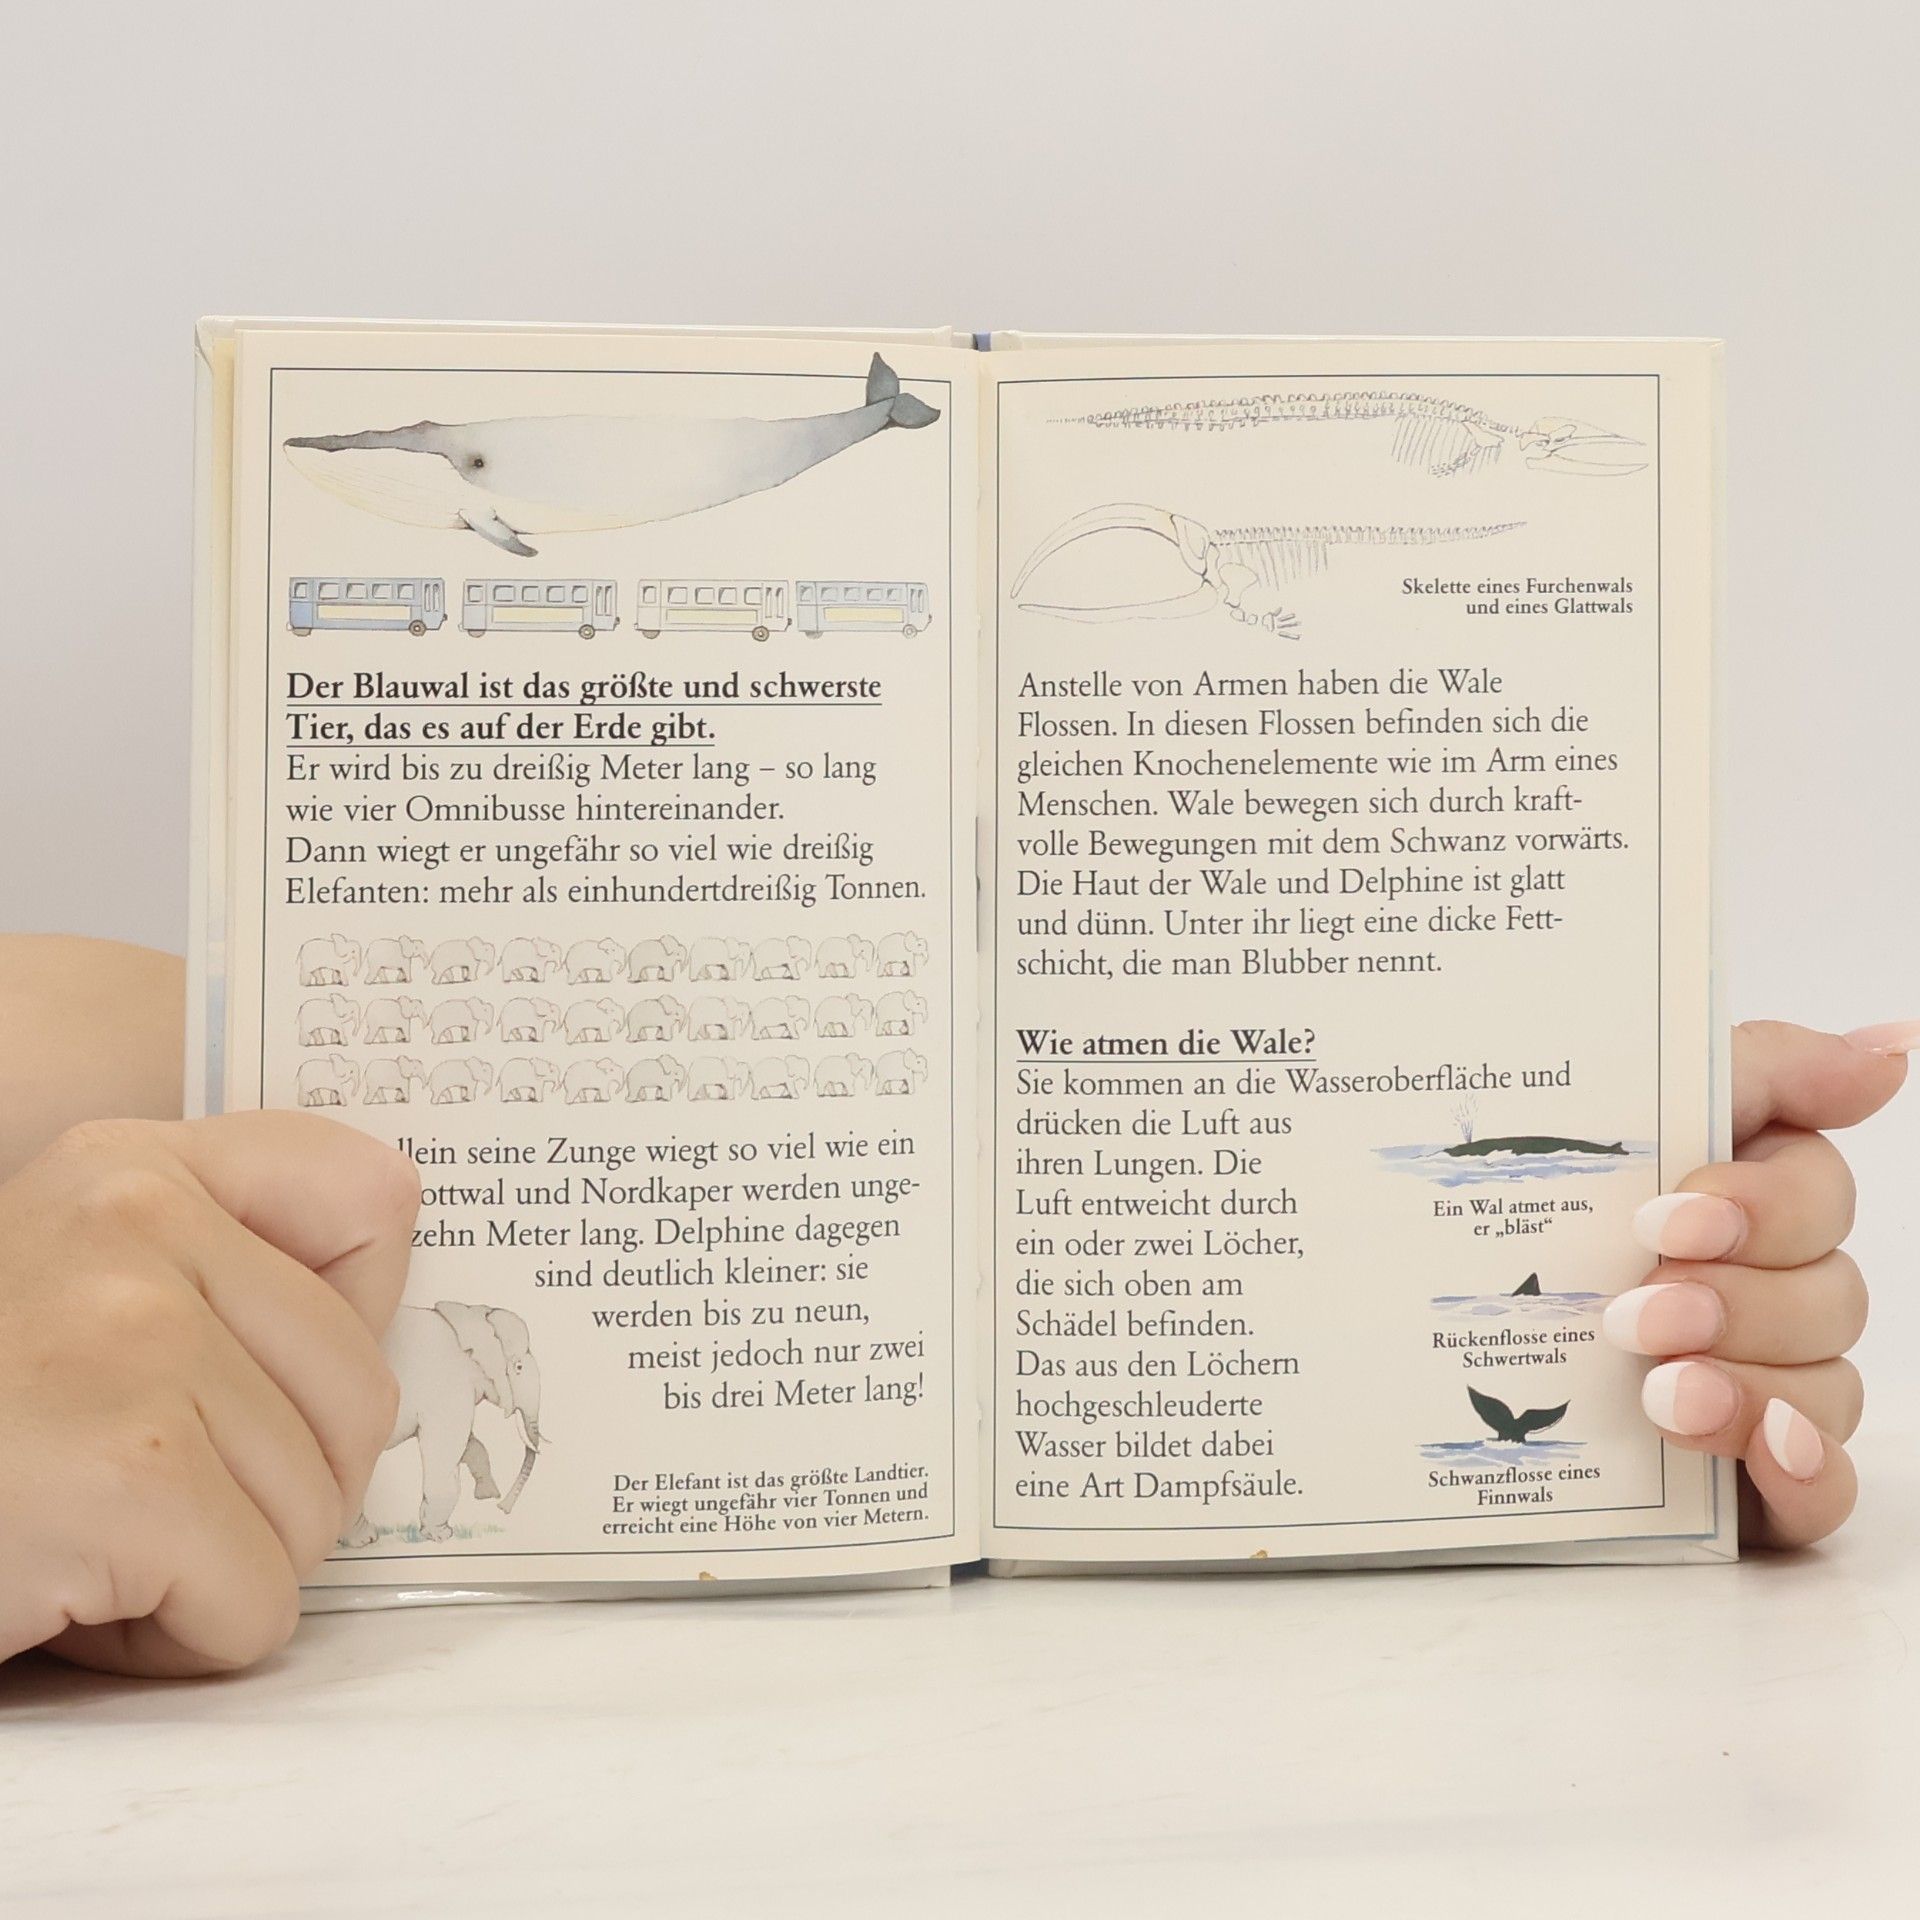 Der Blauwal ist das größte und schwerste
Tier, das es auf der Erde gibt.
Er wird bis zu dreißig Meter lang – so lang
wie vier Omnibusse hintereinander.
Dann wiegt er ungefähr so viel wie dreißig
Elefanten: mehr als einhundertdreißig Tonnen.
seine Zunge wiegt so viel wie ein
und Nordkaper werden unge-
Meter lang. Delphine dagegen
sind deutlich kleiner: sie
werden bis zu neun,
meist jedoch nur zwei
bis drei Meter lang!
Der Elefant ist das größte Landtier.
Er wiegt ungefähr vier Tonnen und
erreicht eine Höhe von vier Metern.
Skelette eines Furchenwals
und eines Glattwals
Anstelle von Armen haben die Wale
Flossen. In diesen Flossen befinden sich die
gleichen Knochenelemente wie im Arm eines
Menschen. Wale bewegen sich durch kraft-
volle Bewegungen mit dem Schwanz vorwärts.
Die Haut der Wale und Delphine ist glatt
und dünn. Unter ihr liegt eine dicke Fett-
schicht, die man Blubber nennt.
Wie atmen die Wale?
Sie kommen an die Wasseroberfläche und
drücken die Luft aus
ihren Lungen. Die
Luft entweicht durch
ein oder zwei Löcher,
die sich oben am
Schädel befinden.
Das aus den Löchern
hochgeschleuderte
Wasser bildet dabei
eine Art Dampfsäule.
Ein Wal atmet aus,
er „bläst“
Rückenflosse eines
Schwertwals
Schwanzflosse eines
Finnwals